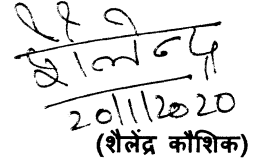 शैलेन्द्र
20/11/2020
(शैलेंद्र कौशिक)